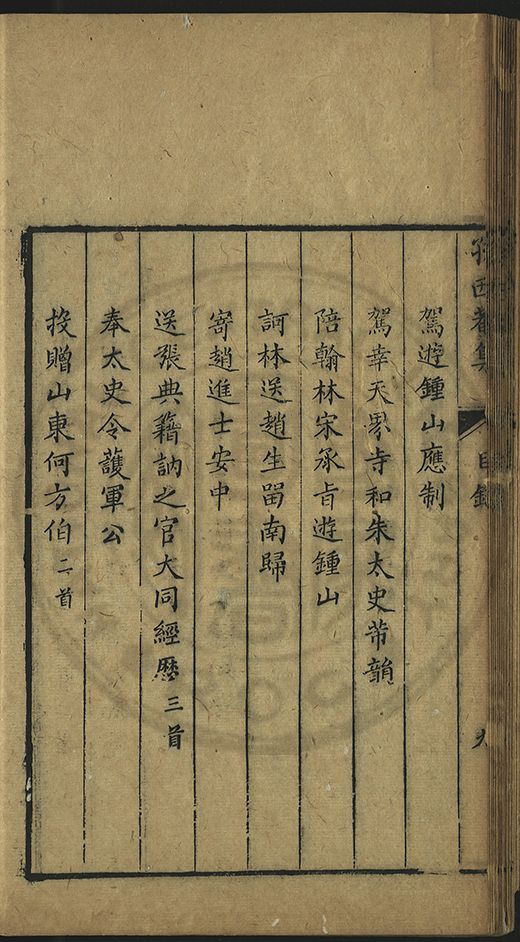 孫西菴集 目錄
駕遊鍾山應制
駕幸天界寺和朱太史芾韻
陪翰林宋承旨遊鍾山
訶林送趙生畱南歸
寄趙進士安中
送張典籍訥之官大同經厯三首
奉太史令䕶軍公
投贈山東何方伯二首